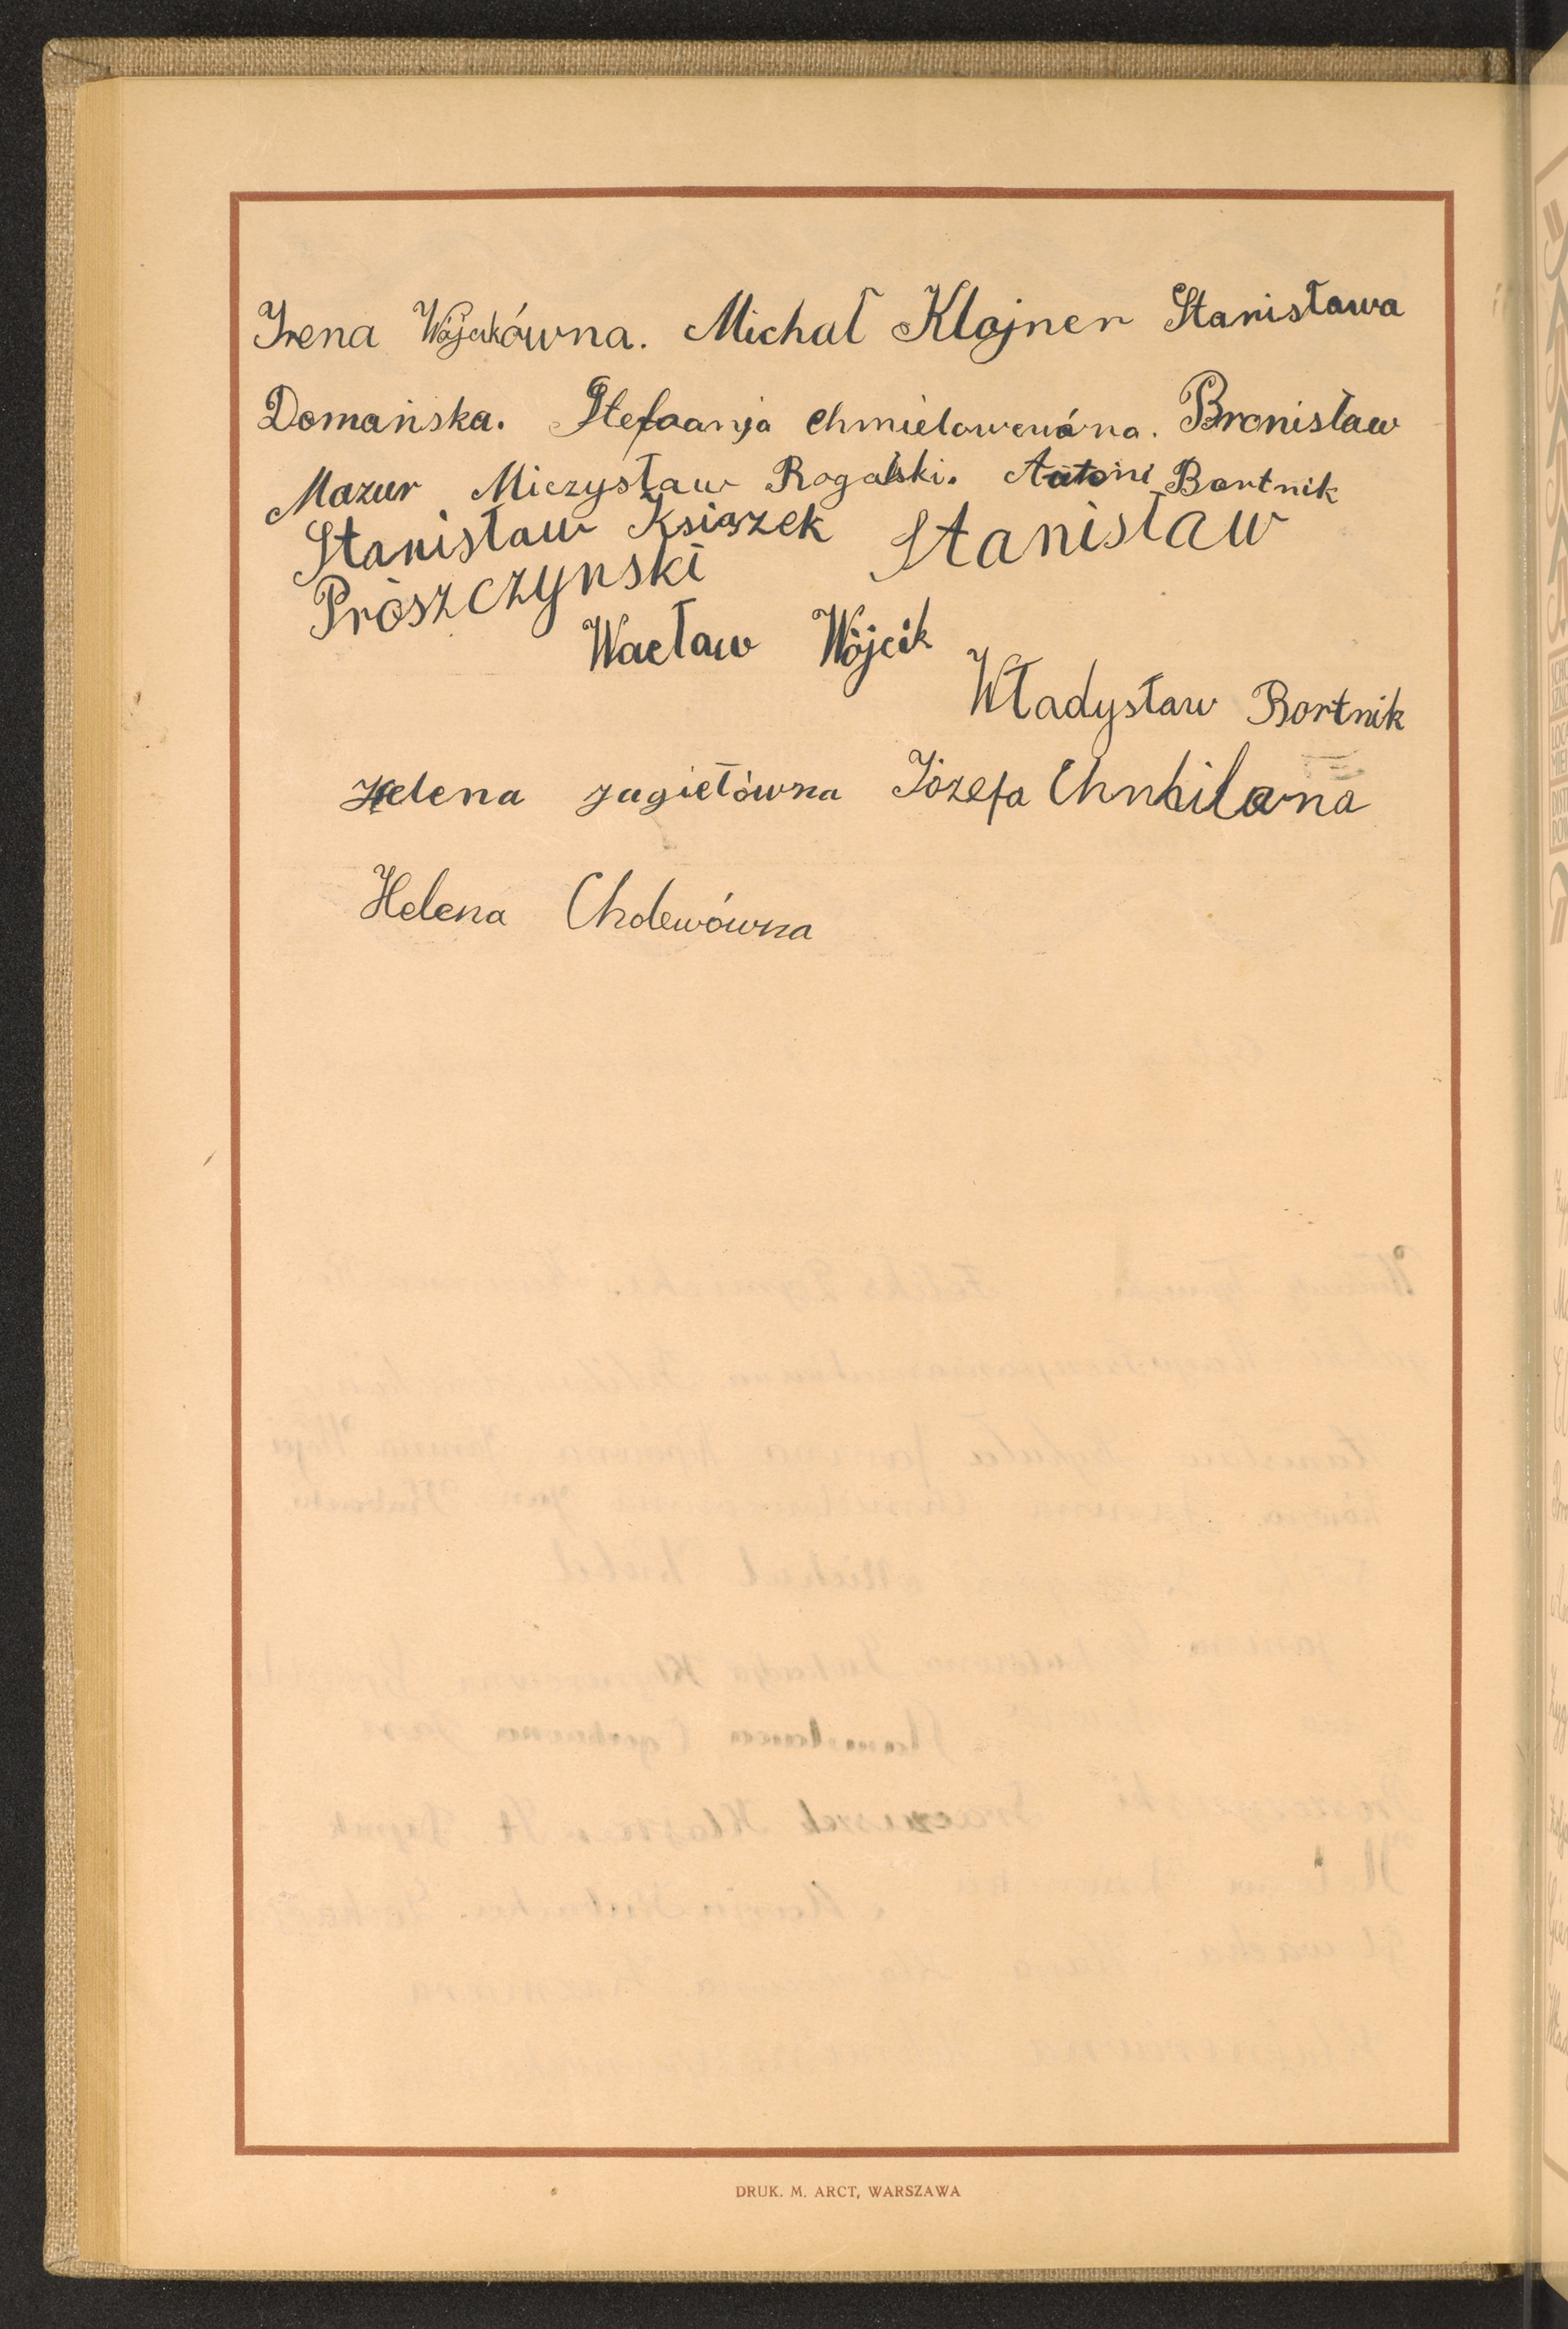 Irena Wójcikówna. Michał Klajner Stanisława
Domańska. Stefaanja Chmielowcówna. Bronisław
Mazur Mieczysław Rogalski. Antoni Bortnik
Stanisław Książek Stanisław
Prószczynski
Wacław Wójcik
Władysław Bortnik
Helena Jagiełówna Józefa
Helena Cholewówna
DRUK. M. ARCT, WARSZAWA